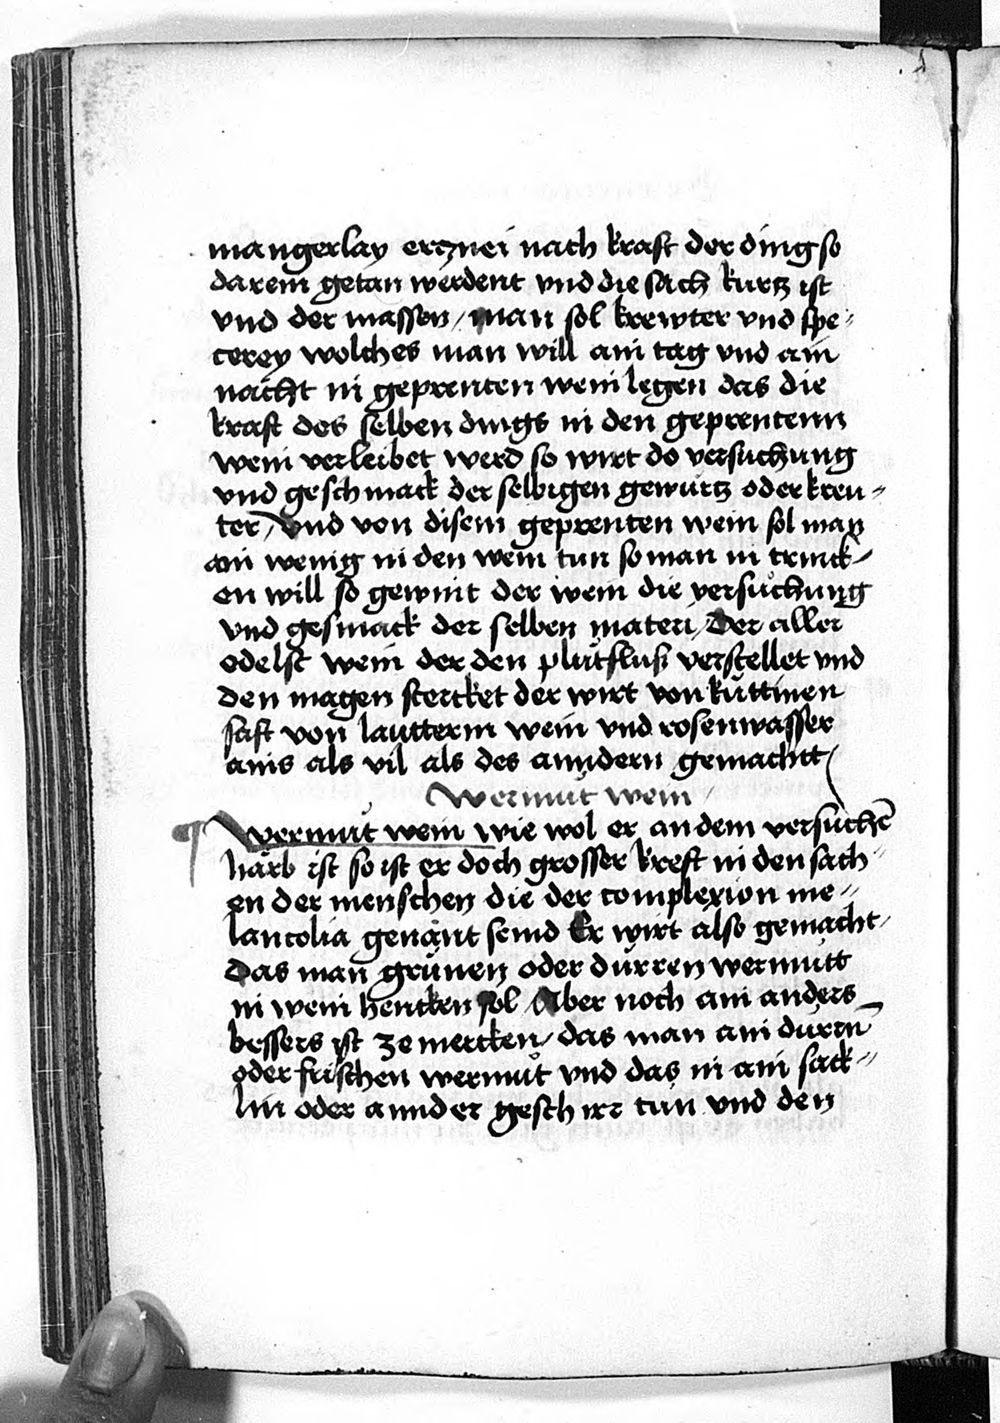 mangerlay ertznei nach kraft der ding so
darein getan werdent vnd die sach kurtz ist
vnd der massen / man sol krewter vnd spe-
cerey wolches man will ain tag vnd ain
nacht in geprenten wein legen das die
kraft des selben dings in den geprentenn
wein verleibet werd so wirt do versuchung
vnd geschmack der selbigen gewurtz oder kreu-
ter / vnd von disem geprenten wein sol man
ain wenig in den wein tun so man in trinck-
en will so gewint der wein die versuͦchung
vnd gesmack der selben materi / Der aller
edelst wein der den pluͦtfluß verstellet vnd
den magen stercket der wirt von küttinen
saft von lautterm wein vnd rosenwasser
ains als vil als des anndern gemachtt /
Wermuͦt wein /
¶ Wermuͦt wein wie wol er an dem versuͦchē
harb ist so ist er doch grosser kreft in den sach-
en der menschen die der complexion me-
lancolia genant seind Er wirt also gemacht /
Das man grünen oder dürren wermuͦtt
in wein hencken sol Aber noch ain anders
bessers ist ze mercken / das man ain dürrn̄
oder frischen wermuͦt vnd das in ain sack-
lin oder annder geschirr tun vnd den